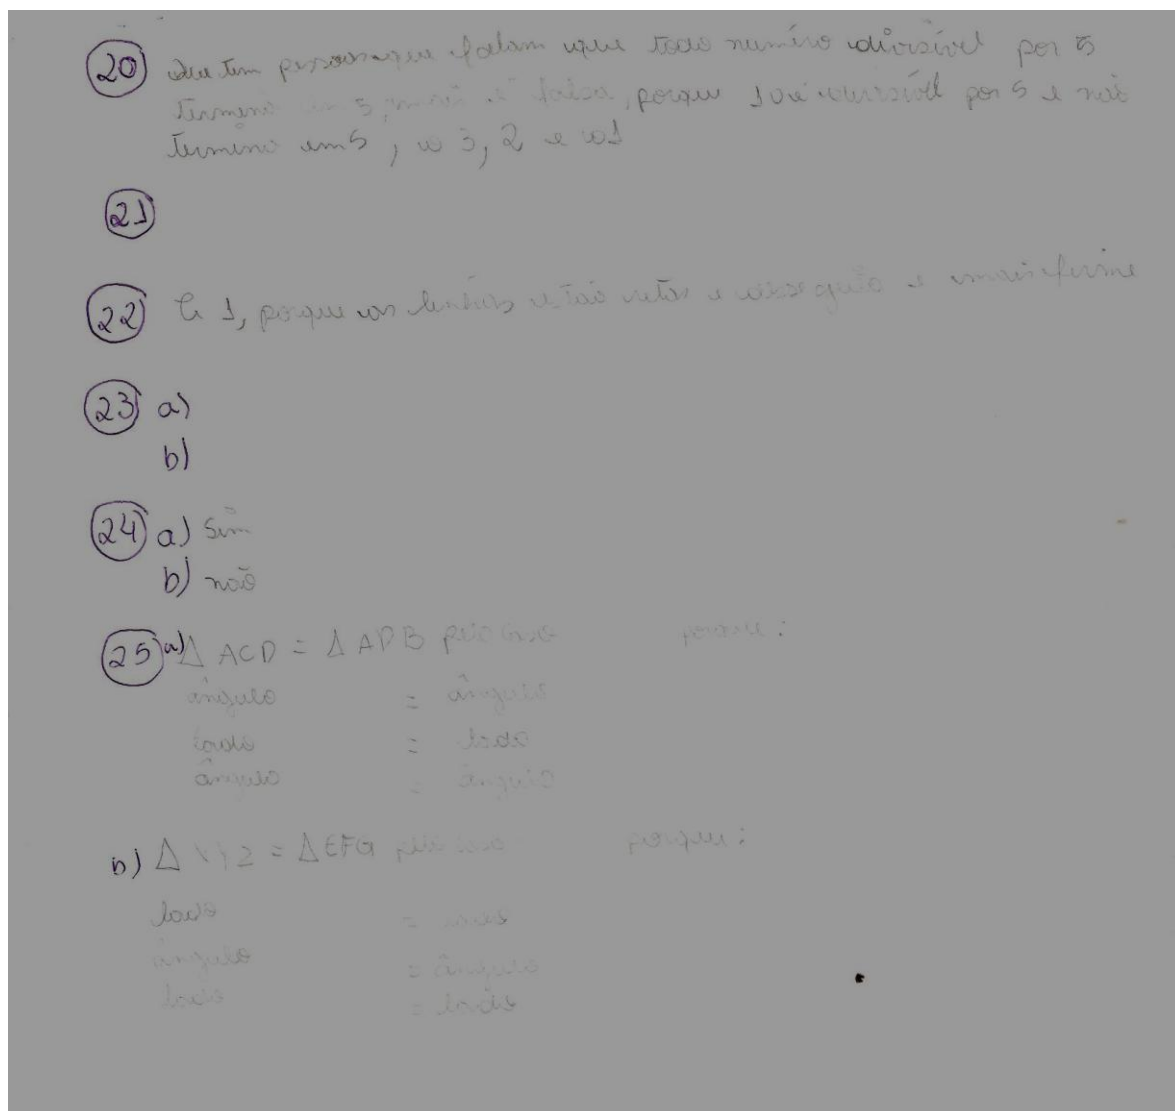 20 que tem pessoas que falam que todo número divisível por 5
termina em 5, mais é falsa, porque 10 é divisível por 5 e não
termino em 5, o 3, 2 e o 1
21
22 G 1, porque as linhas estão retas e o mais firme
23 a)
b)
24 a) Sim
b) não
25 a) Δ ACD = Δ ADB pelo caso porque:
ângulo = ângulo
lado = lado
ângulo = ângulo
b) Δ XYZ = Δ EFG pelo caso porque:
lado = lado
ângulo = ângulo
lado = lado